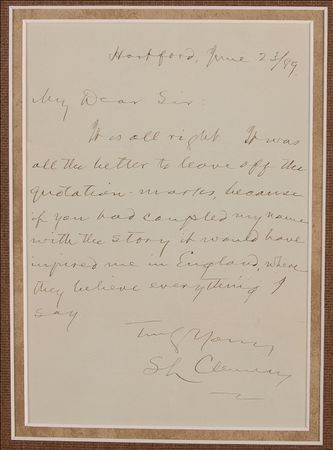 Hartford, June 23/89.
My Dear Sir:
It is all right. It was
all the better to leave off the
quotation-marks, because
if you had coupled my name
with the story it would have
injured me in England, where
they believe everything I
say
Truly Yours
SL Clemens